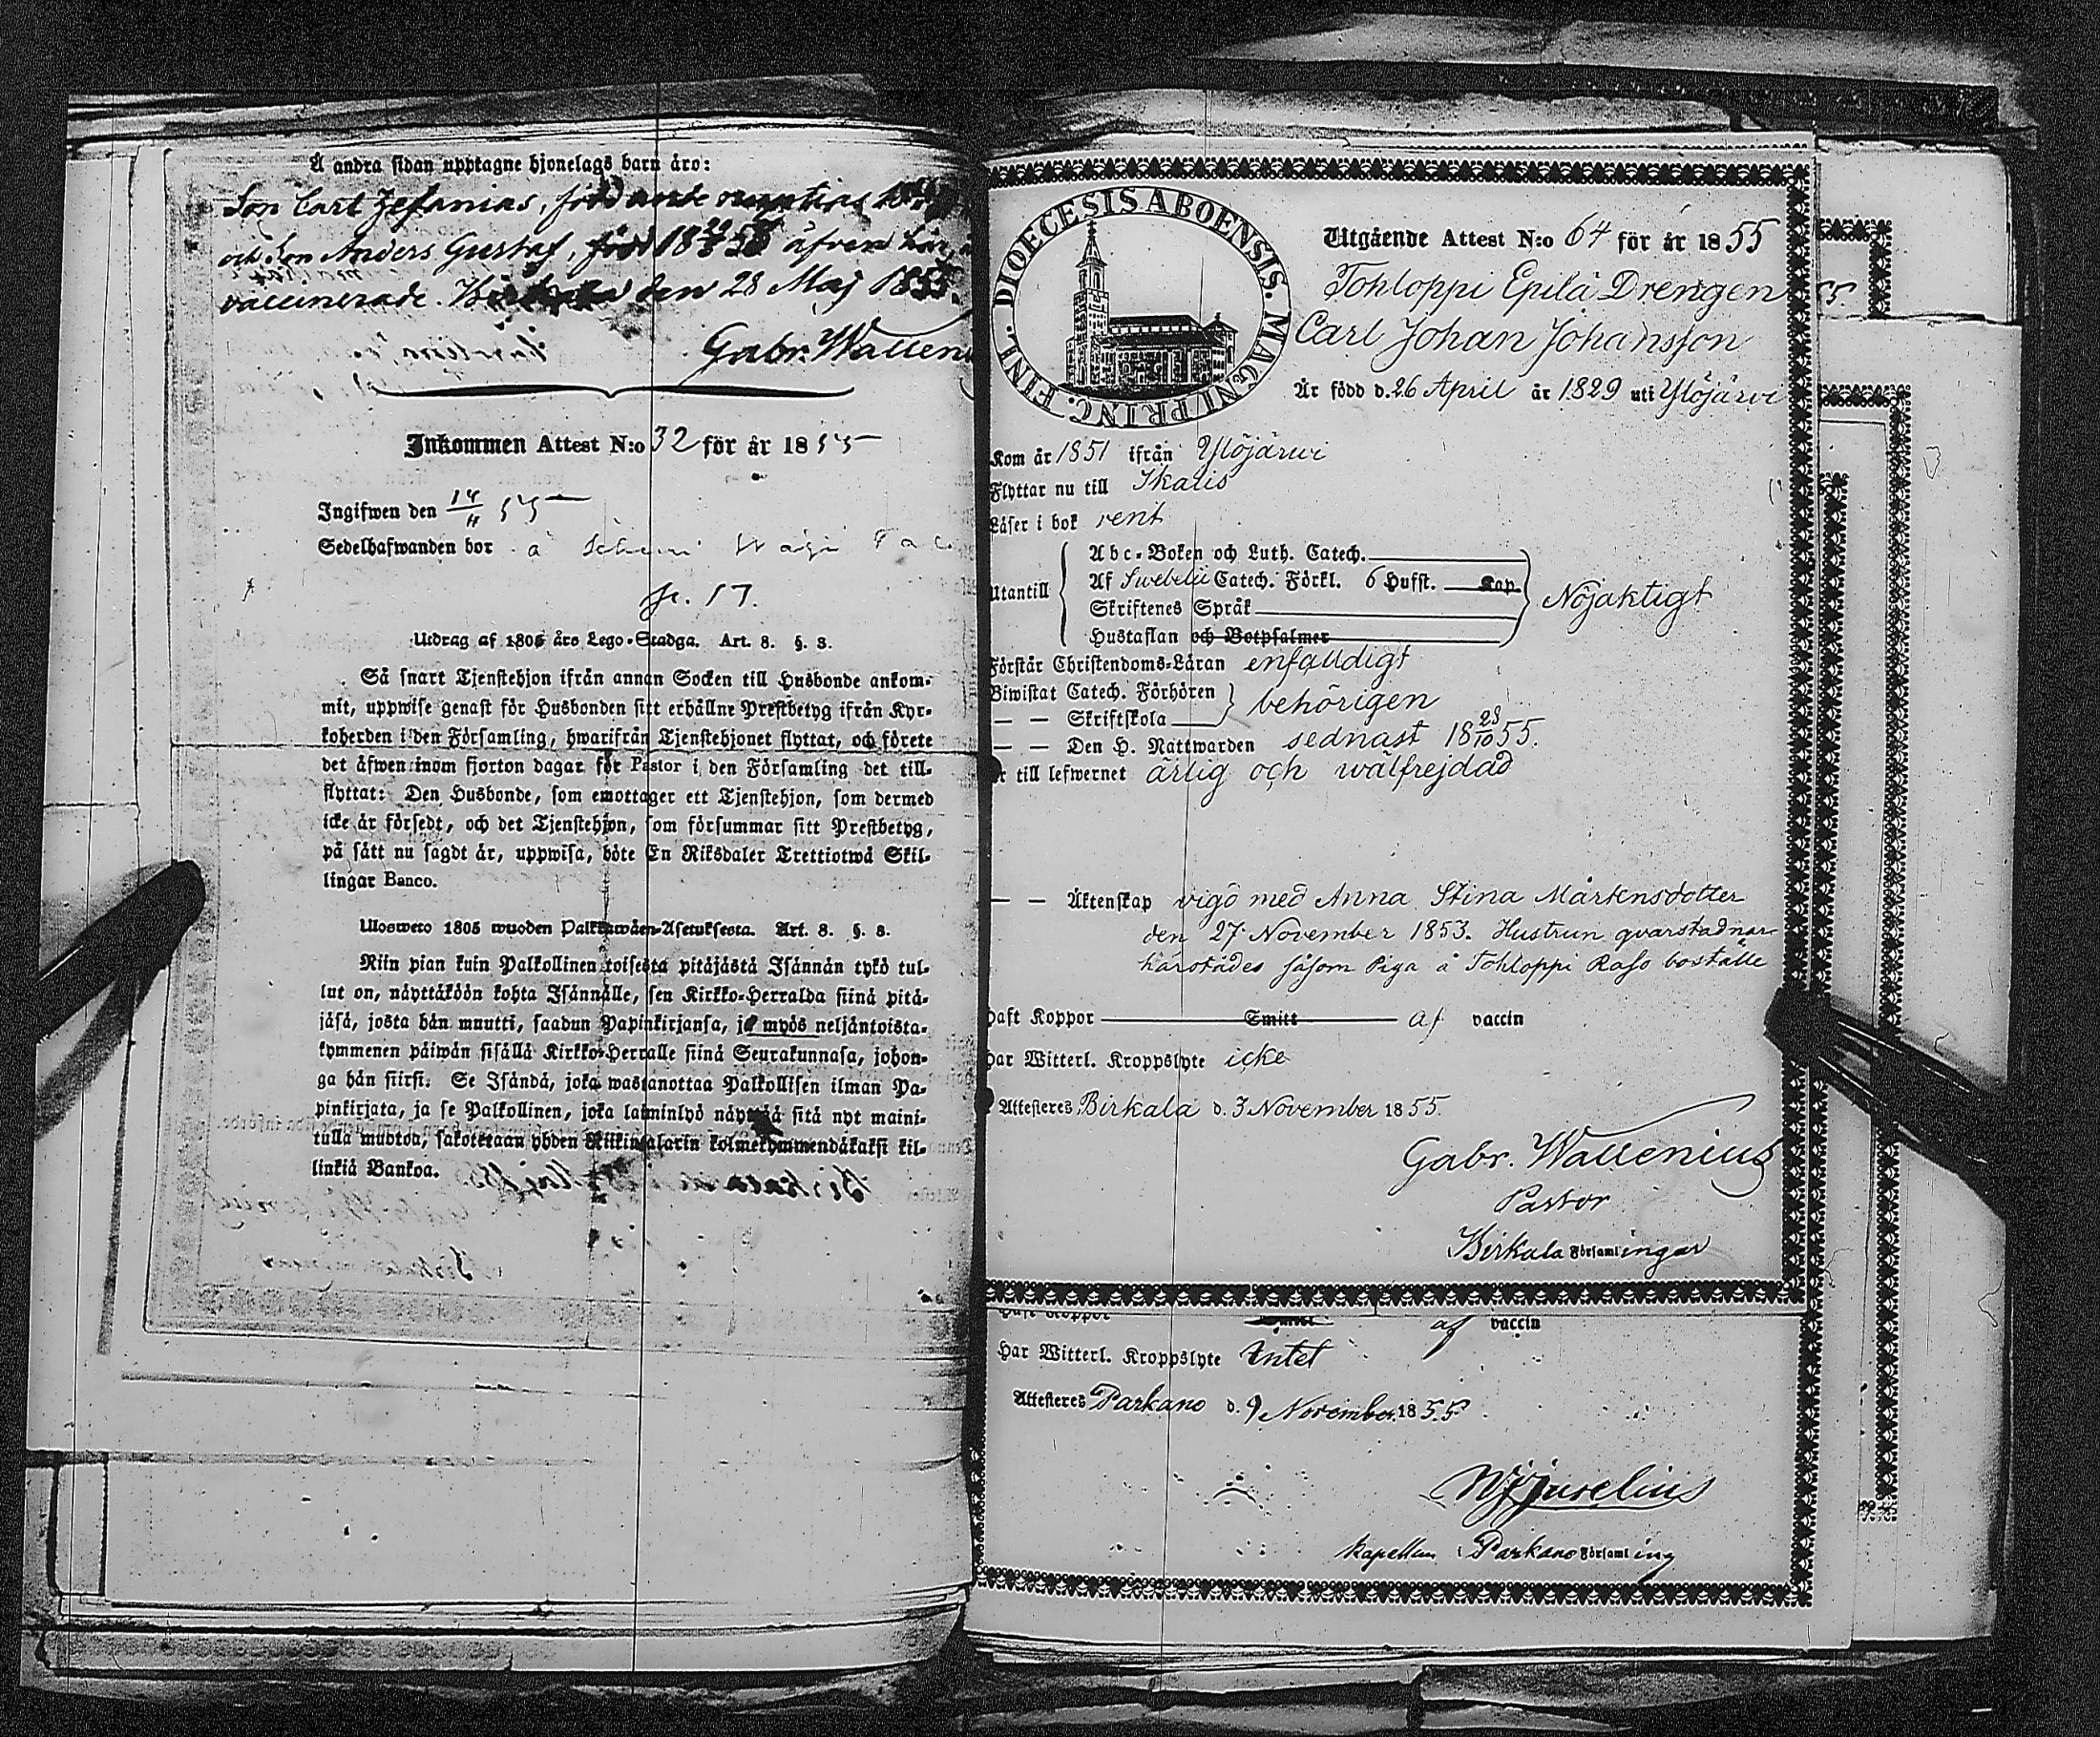 Å andra sidan upptagne hjonelags barn äro:
Son Carl Zefanias, född ante nuptias
och Son Anders Gustaf, född 18 53 äfven här
vaccinerade. Birkala den 28 Maj 1855.
Gabr. Wallen
Inkommen Attest N:o 32 för år 1855
Ingifwen den 14/11 55
Sedelhafwanden bor å
p. 17.
Utdrag af 1805 års Lego-Stadga. Art. 8. §. 8.
Så snart Tjenstehjon ifrån annan Socken till Husbonde ankom-
mit, uppwise genast för Husbonden sitt erhållne Prestbetyg ifrån Kyr-
koherden i den Församling, hwarifrån Tjenstehjonet flyttat, och förete
det äfwen inom fjorton dagar för Pastor i den Församling det till-
flyttat: Den Husbonde, som emottager ett Tjenstehjon, som dermed
icke är försedt, och det Tjenstehjon, som försummar sitt Prestbetyg,
på sått nu sagdt är, uppwisa, böte En Riksdaler Trettiotwå Skil-
lingar Banco.
Ulosweto 1805 wuoden Palkkawäen-Asetuksesta. Art. 8. §. 8.
Niin pian kuin Palkollinen toisesta pitäjästä Isännän tykö tul-
lut on, näyttäköön kohta Isännälle, sen Kirkko-Herralda siinä pitä-
jäsä, josta hän muutti, saadun Papinkirjansa, ja myös neljäntoista-
kymmenen päiwän sisällä Kirkko-Herralle siinä Seurakunnasa, johon-
ga hän siirsi. Se Isändä, joka wastanottaa Palkollisen ilman Pa-
pinkirjata, ja se Palkollinen, joka laiminlyö näyttää sitä nyt maini-
tulla muotoa, sakotetaan yhden Riikintalarin kolmekymmendäkaksi kil-
linkiä Bankoa.
DIOECESIS ABOENSIS. MAGNI PRINC. FINL.
Utgående Attest N:o 64 för år 1855
Tohloppi Epilä Drengen
Carl Johan Johansson
Är född d. 26 April år 1829 uti Ylöjärvi
Kom år 1851 ifrån Ylöjärvi
Flyttar nu till Ikalis
Läser i bok rent
Abc-Boken och Luth. Catech.
Utantill Af Swebelii Catech. Förkl. 6 Hufst. Kap. Nöjaktigt
Skriftenes Språk
Hustaflan och Botpsalmer
Förstår Christendoms-Läran enfalldigt
Biwistat Catech. Förhören behörigen
— — Skriftskola
— — Den H. Nattwarden sednast 18 28/10 55.
är till lefwernet ärlig och wälfrejdad
— — Äktenskap vigd med Anna Stina Mårtensdotter
den 27 November 1853. Hustrun qvarstadnar
härstädes såsom Piga å Tohloppi Raso boställe
Haft Koppor Smitt af vaccin
Har Witterl. Kroppslyte icke
Attesteres Birkala d. 3 November 1855.
Gabr. Wallenius
Pastor
Birkala Församlingar
Haft Koppor Smitt af vaccin
Har Witterl. Kroppslyte Intet
Attesteres Parkano d. 9 November 1855
kapellan i Parkano Församling